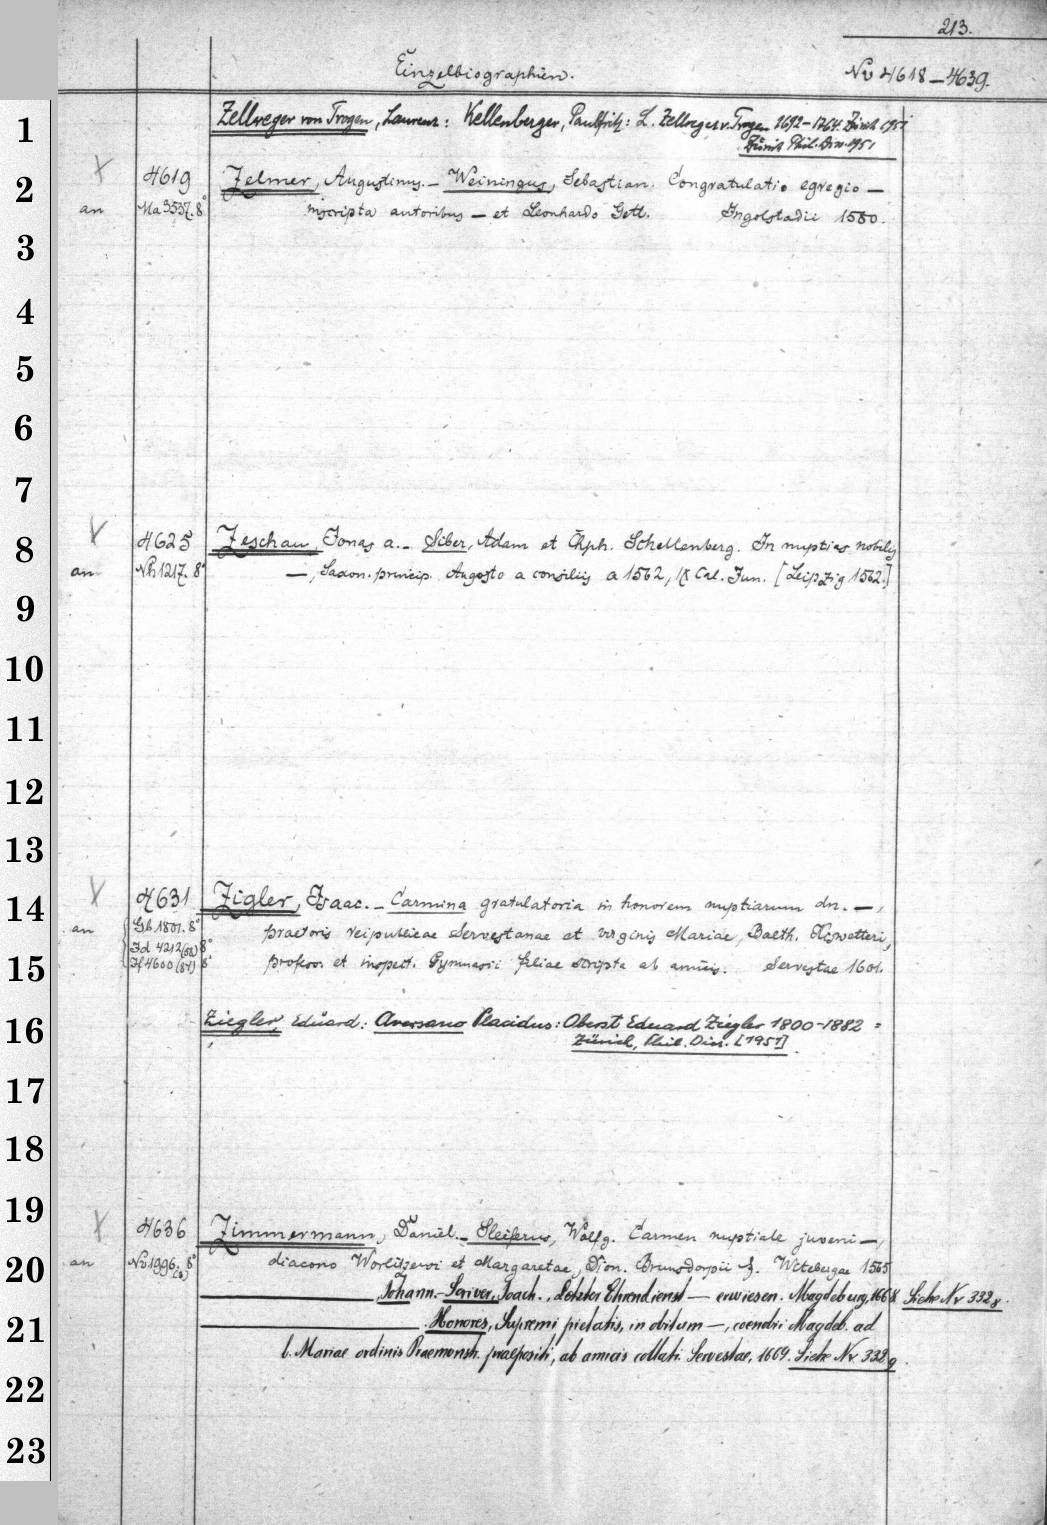 213.
Einzelbiographien. Nv 4618–4639.
1 Zellweger von Trogen, Laurenz: Kellenberger, Paulfritz: L. Zellweger v. Trogen 1692–1764. Zürich 1951
Zürich Phil. Diss. 1951
2 4619 Zelmer, Augustinus. – Weiningus, Sebastian. Congratulatio egregio —
an Na 3537. 8° inscripta autoribus — et Leonhardo Gett. Ingolstadii 1580.
3
4
5
6
7
8 4625 Zeschau, Jonas a. – Siber, Adam et Chph. Schellenberg. In nuptias nobilis
an Nh 1217. 8° —, Saxon. princip. Augusto a consiliis a 1562, IX Cal. Jun. [Leipzig 1562.]
9
10
11
12
13
14 4631 Zigler, Isaac. – Carmina gratulatoria in honorem nuptiarum dn. —,
an Gb 1801. 8° praetoris reipublicae Servestanae et virginis Mariae, Balth.
Id 4212 (52) 8°
15 If 4600 (84) 8° profess. et inspect. Gymnasii filiae scripta ab amicis. Servestae 1601.
16 Ziegler, Eduard: Aversano Placidus: Oberst Eduard Ziegler 1800–1882 =
Zürich, Phil. Diss. [1951]
17
18
19 4636 Zimmermann, Daniel. – Sleiferus, Wolfg. Carmen nuptiale juveni —,
20 an Nv 1996. 8° diacono Worlitzensi et Margaretae, Dion. Brunsdorpii f. Witebergae 1565
Johann. – Scriver, Joach., Letzter Ehrendienst — erwiesen. Magdeburg, Siehe Nv 332
21 Honores, Supremi pietatis, in obitum —, coenobii Magdeb. ad
b. Mariae ordinis Praemonstr. praepositi, ab amicis collati. Servestae, 1669. Siehe Nv 332
22
23